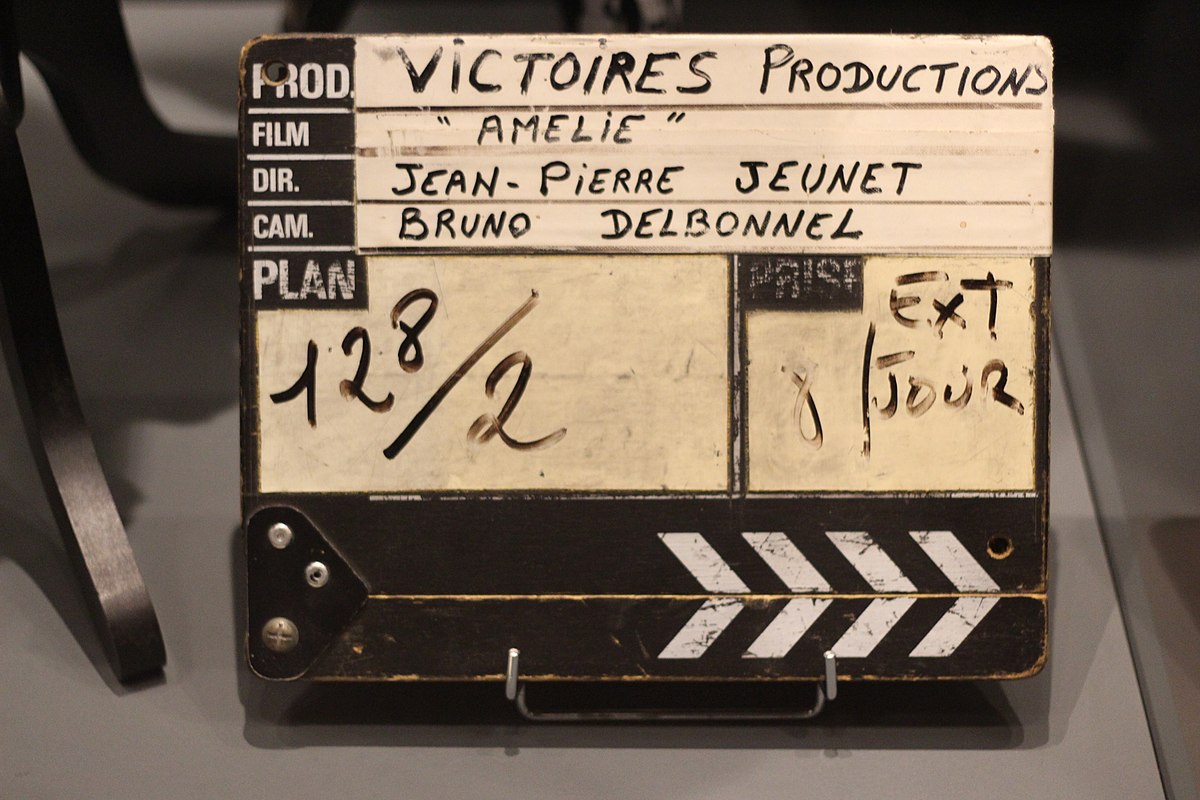 PROD. VICTOIRES PRODUCTIONS
FILM " AMELIE "
DIR. JEAN-PIERRE JEUNET
CAM. BRUNO DELBONNEL
PLAN 128/2
PRISE 8 EXT
JOUR